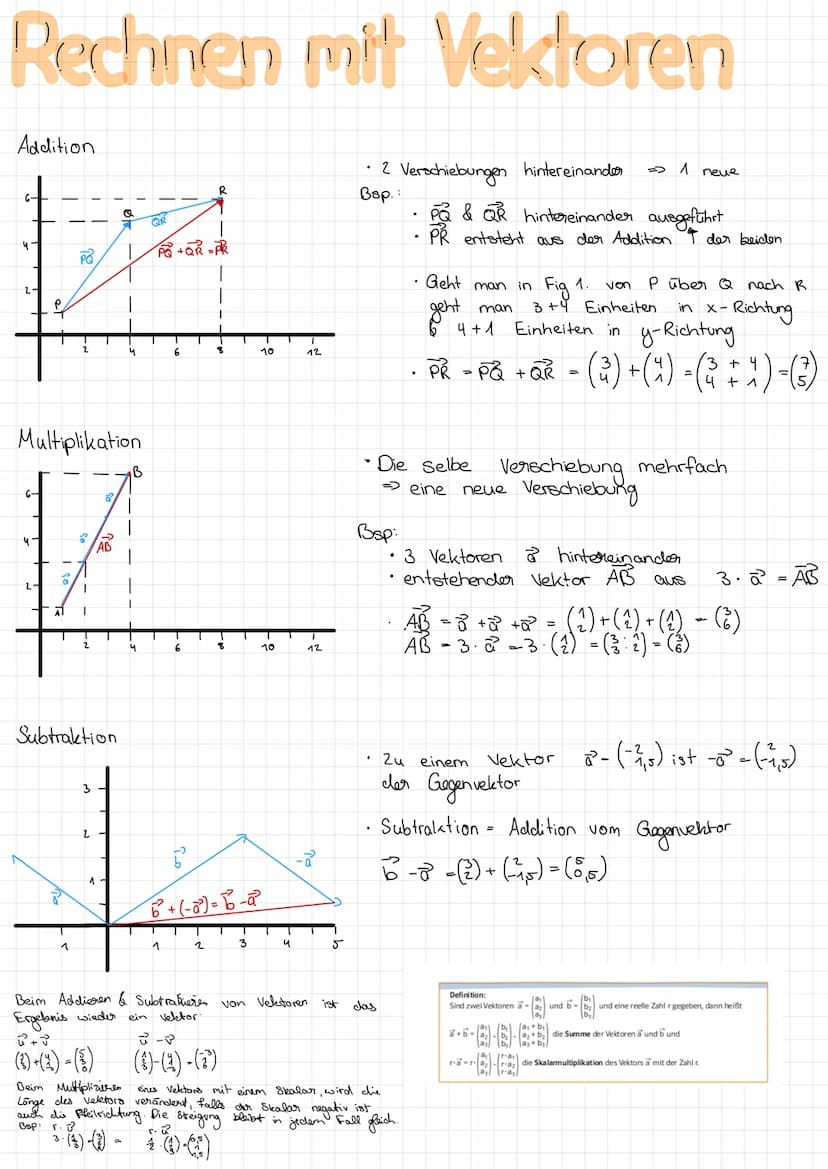 Rechnen mit Vektoren
Addition
6
4
2
2 4 6 8 10 12
P
Q
R
PQ
QR
PQ + QR = PR
· 2 Verschiebungen hintereinander => 1 neue
Bsp.:
· PQ & QR hintereinander ausgeführt
· PR entsteht aus der Addition ↑ der beiden
· Geht man in Fig 1. von P über Q nach R
geht man 3+4 Einheiten in x-Richtung
& 4+1 Einheiten in y-Richtung
· PR = PQ + QR = (3 4) + (4 1) = (3 + 4 4 + 1) = (7 5)
Multiplikation
6
4
2
2 4 6 8 10 12
A
B
a
a
a
AB
· Die selbe Verschiebung mehrfach
=> eine neue Verschiebung
Bsp:
· 3 Vektoren a hintereinander
· entstehender Vektor AB aus 3 · a = AB
· AB = a + a + a = (1 2) + (1 2) + (1 2) = (3 6)
AB = 3 · a = 3 · (1 2) = (3 · 1 3 · 2) = (3 6)
Subtraktion
3
2
1
1 1 2 3 4 5
a
b
-a
b + (-a) = b - a
· Zu einem Vektor a = (-2 1,5) ist -a = (2 -1,5)
der Gegenvektor
· Subtraktion = Addition vom Gegenvektor
b - a = (3 2) + (2 -1,5) = (5 0,5)
Beim Addieren & Subtrahieren von Vektoren ist das
Ergebnis wieder ein Vektor.
u + v
u - v
Beim Multiplizieren eines Vektors mit einem Skalar, wird die
Länge des Vektors verändert, falls der Skalar negativ ist
auch die Pfeilrichtung. Die Steigung bleibt in jedem Fall gleich.
Bsp:
Definition:
Sind zwei Vektoren a = (a1 a2 a3) und b = (b1 b2 b3) und eine reelle Zahl r gegeben, dann heißt
a + b = (a1 a2 a3) + (b1 b2 b3) = (a1 + b1 a2 + b2 a3 + b3) die Summe der Vektoren a und b und
r · a = r · (a1 a2 a3) = (r · a1 r · a2 r · a3) die Skalarmultiplikation des Vektors a mit der Zahl r.